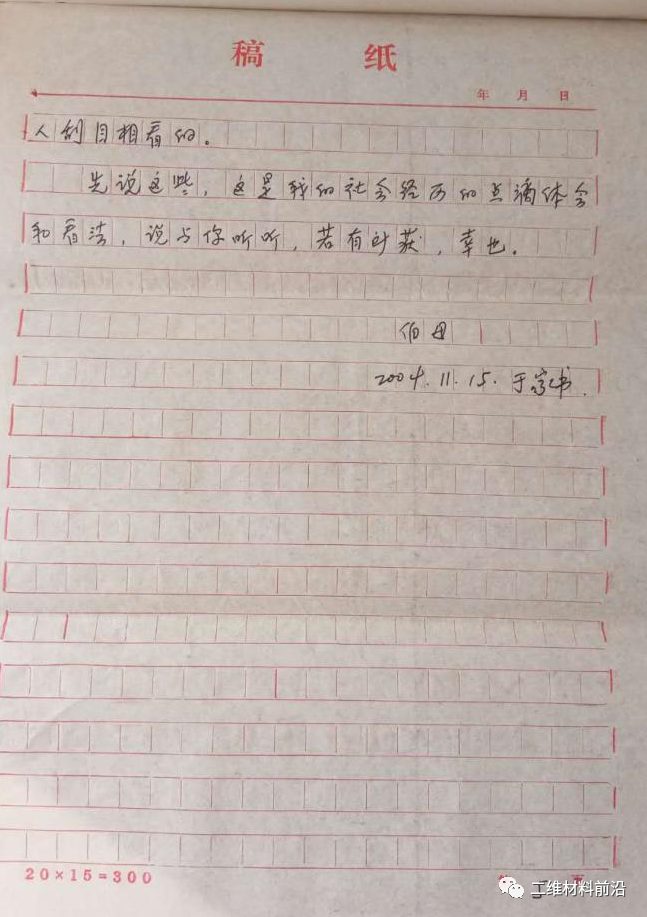 稿 纸
年 月 日
人刮目相看的。
先说这些，这是我的社会经历的点滴体会
和看法，说与你听听，若有所获，幸也。
伯母
2004.11.15.于家书.
20×15=300
二维材料前沿